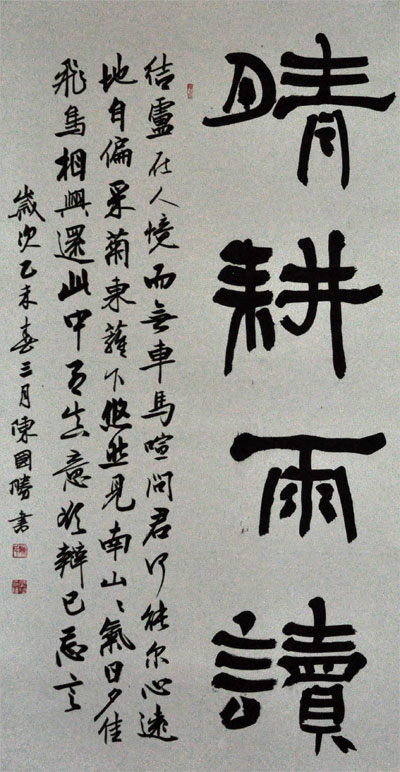 晴耕雨讀
結廬在人境而無車馬喧問君何能尔心遠
地自偏采菊東蘺下悠然見南山〻氣日夕佳
飛鳥相與還此中有真意欲辯已忘言
歲次乙未春三月陳國勝書